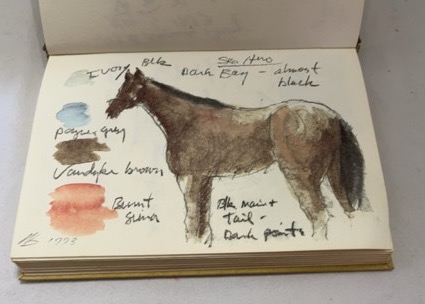 Ivory Blk
Dark Bay - almost
black
paynes gray
Vandyke brown
Burnt
Blk main +
tail -
Dark points
1993